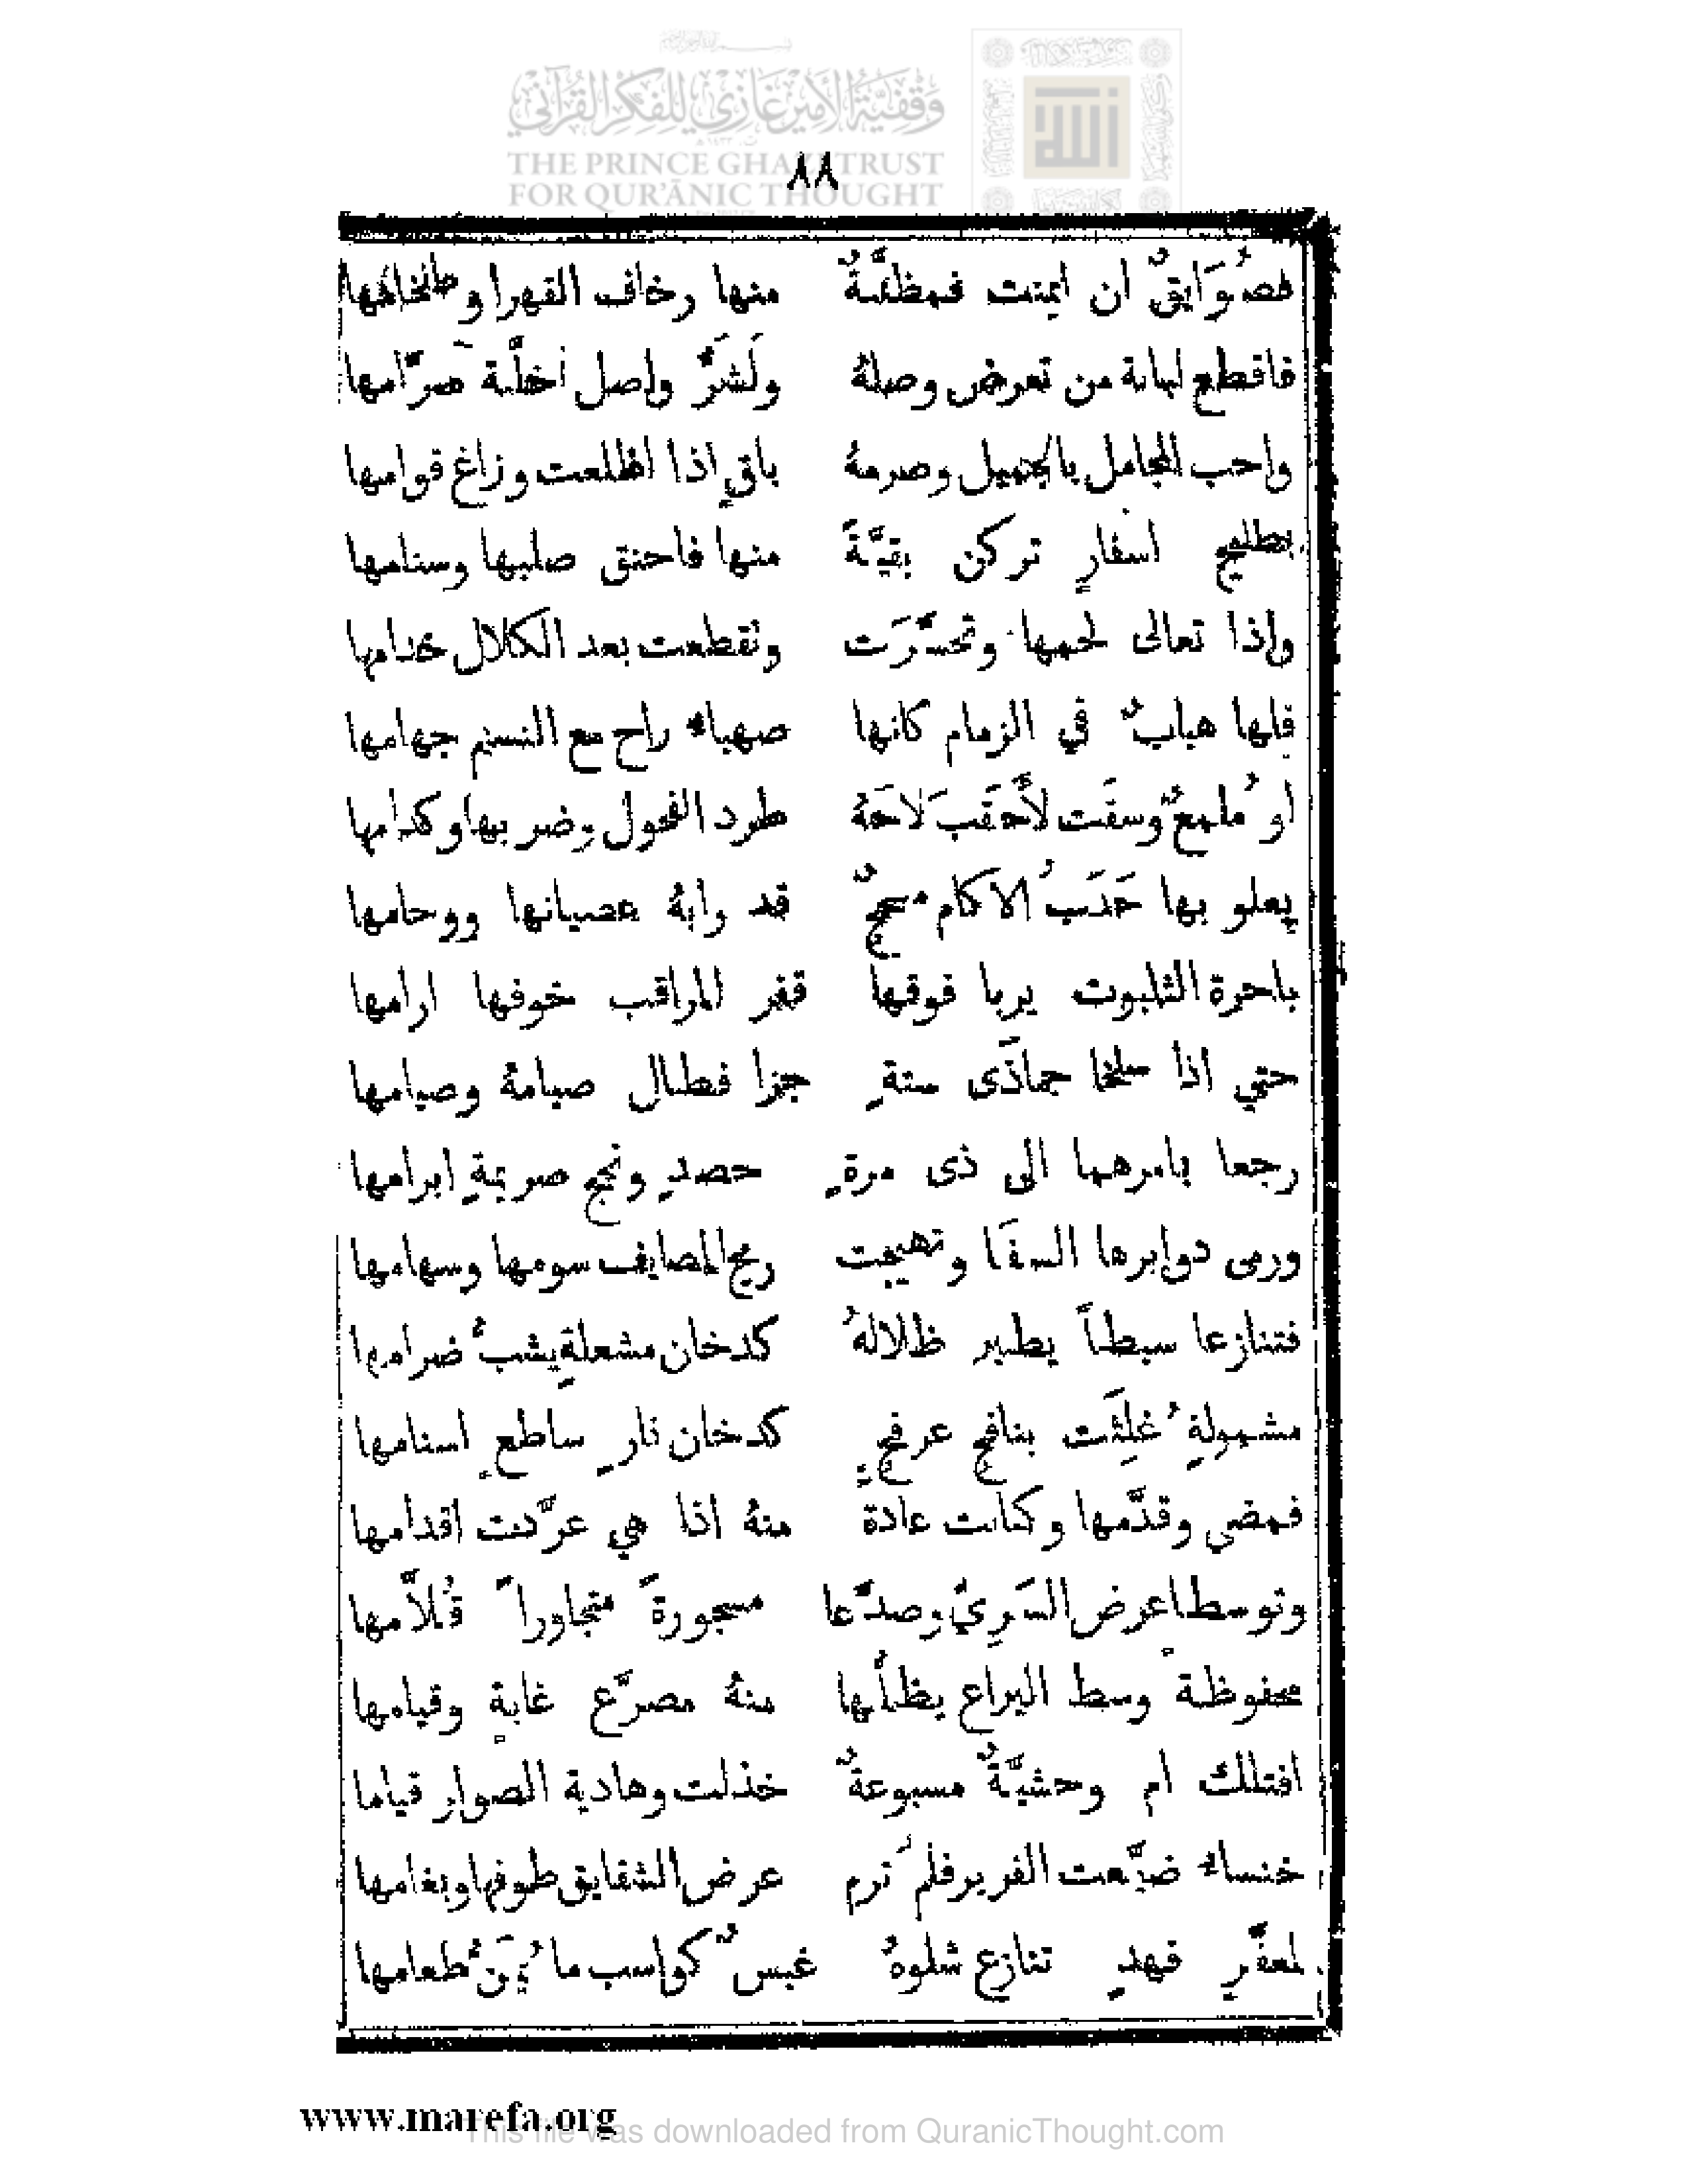 وقفية الأمير غازي للفكر القرآني
THE PRINCE GHAZI TRUST
FOR QUR'ĀNIC THOUGHT
٨٨
فصُوَايقٌ ان ايمنت فمظنَّةٌ منها رخاف القهرا و طلخامها
فاقطع لبانة من تعرض وصلهُ ولَشَرُّ واصل خلَّة صرَّامها
واحب المجامل بالجميل وصرمهُ باقٍ اذا اظلعت وزاغ قوامها
بطليح اسفارٍ تركن بقيَّةً منها فاحنق صلبها وسنامها
واذا تعالى لحمها وتحسَّرَت وتقطعت بعد الكلال خدامها
فلها هبابٌ في الزمام كانها صهباء راح مع النسيم جهامها
او مُلمعٌ وسقَت لأَحقَبَ لاحَهُ طرد الفحول وضربها وكدامها
يعلو بها حَدَبُ الاكام مسحجٌ قد رابهُ عصيانها ووحامها
باحزة الثلبوت يربا فوقها قفر المراقب خوفها ارامها
حتي اذا سلخا جمادَى ستةٍ جزا فطال صيامهُ وصيامها
رجعا بامرهما الى ذى مرةٍ حصدٍ ونجح صريمةٍ ابرامها
ورمى دوابرها السفَا وتهيجت ريح المصايف سومها وسهامها
فتنازعا سبطاً يطير ظلالهُ كدخان مشعلةٍ يشبُّ ضرامها
مشمولةٍ غُلِثَت بنافح عرفجٍ كدخان نارٍ ساطعٍ اسنامها
فمضى وقدَّمها وكانت عادة منهُ اذا هي عرَّدت اقدامها
وتوسطا عرض السَرِيِّ وصدَّعا مسجورةً متجاوراً قُلاَّمها
محفوظة وسط اليراع يظلُّها منهُ مصرَّع غابةٍ وقيامها
افتلك ام وحشيَّةٌ مسبوعةٌ خذلت وهادية الصوار قياما
خنساء ضيَّعت الفرير فلم ترم عرض الشقايق طوفها وبغامها
لمعفَّرٍ قهدٍ تنازع شلوهُ غبسٌ كواسب ما يُمَنُّ طعامها
www.marefa.org
This file was downloaded from QuranicThought.com